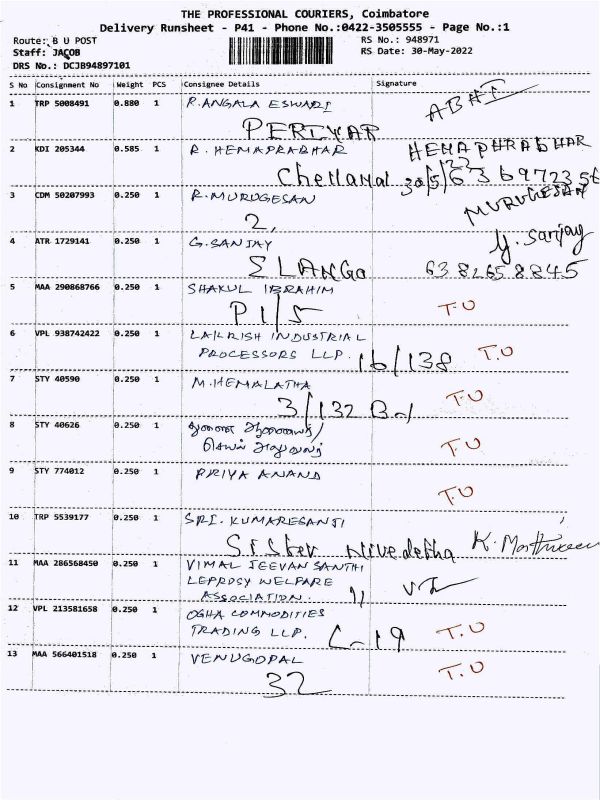 THE PROFESSIONAL COURIERS, Coimbatore
Delivery Runsheet - P41 - Phone No.:0422-3505555 - Page No.:1
Route: B U POST
RS No.: 948971
Staff: JACOB
RS Date: 30-May-2022
DRS No.: DCJB94897101
S No Consignment No Weight PCS Consignee Details Signature
1 TRP 5008491 0.880 1 R.ANGALA ESWARI ABHI
PERIYAR
2 KDI 205344 0.585 1 R. HEMAPRABHAR HEMAPHRABHAR
Chellamal 30/5/22
3 CDM 50207993 0.250 1 R.MURUGESAN MURUGESAN
2,
4 ATR 1729141 0.250 1 G.SANJAY G. Sanjay
ELANGO 6382658845
5 MAA 290868766 0.250 1 SHAKUL IBRAHIM T.U
P1/5
6 VPL 938742422 0.250 1 LAKRISH INDUSTRIAL
PROCESSORS LLP. 16/138 T.U
7 STY 40590 0.250 1 M.HEMALATHA T.U
3/132
8 STY 40626 0.250 1
T.U
9 STY 774012 0.250 1 PRIYA ANAND
T.U
10 TRP 5539177 0.250 1 SRI. KUMARESANJI
Sister Nivedetha K.
11 MAA 286568450 0.250 1 VIMAL JEEVAN SANTHI
LEPROSY WELFARE
ASSOCIATION. 11
12 VPL 213581658 0.250 1 OGHA COMMODITIES
TRADING LLP. C-19 T.U
13 MAA 566401518 0.250 1 VENUGOPAL T.U
32